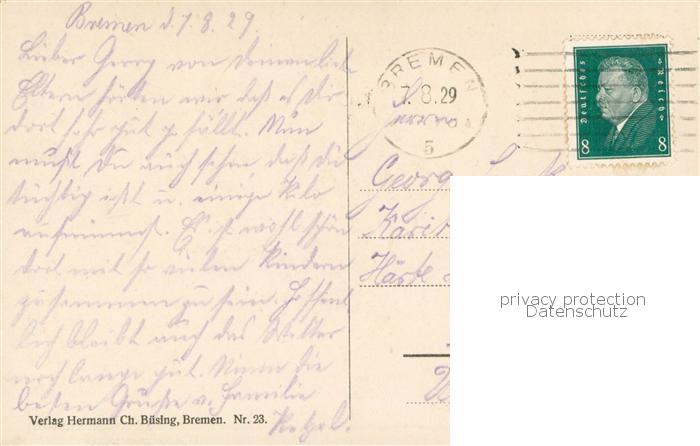 Bremen d. 7.8.29.
Lieber Georg von Deinen lieb.
Eltern hörten wir daß es Dir
dort sehr gut gefällt. Nun
mußt Du auch sehen, daß Du
tüchtig ißt u. einige Kilo
aufnimmst. Es ist wohl schön
dort mit so vielen Kindern
zusammen zu sein. Hoffent
lich bleibt auch das Wetter
noch lange gut. Nimm die
besten Grüße v. Familie
Verlag Hermann Ch. Büsing, Bremen. Nr. 23.
BREMEN
7.8.29
5
Deutsches Reich
8 8
Georg
privacy protection
Datenschutz